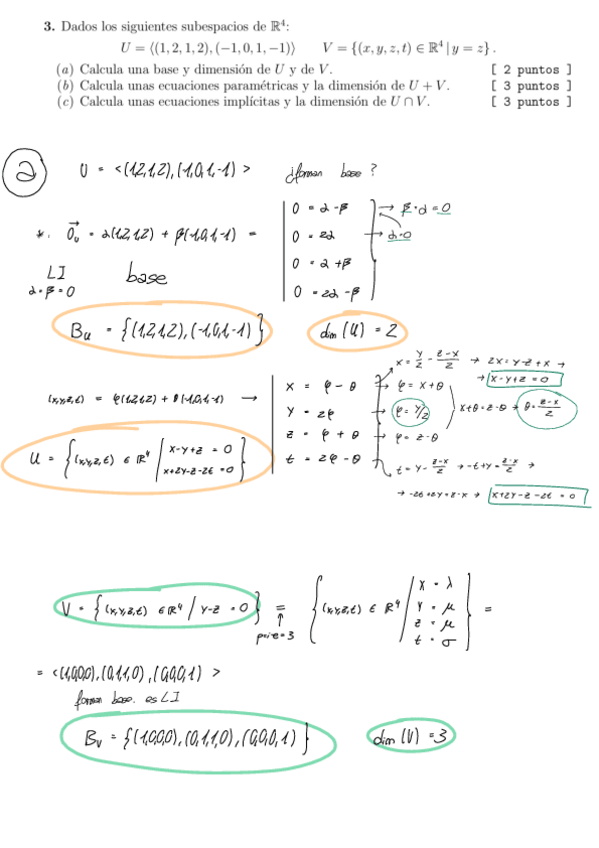 3. Dados los siguientes subespacios de ℝ⁴:
U = ⟨(1, 2, 1, 2), (−1, 0, 1, −1)⟩ V = {(x, y, z, t) ∈ ℝ⁴ | y = z} .
(a) Calcula una base y dimensión de U y de V. [ 2 puntos ]
(b) Calcula unas ecuaciones paramétricas y la dimensión de U + V. [ 3 puntos ]
(c) Calcula unas ecuaciones implícitas y la dimensión de U ∩ V. [ 3 puntos ]
a U = <(1,2,1,2),(-1,0,1,-1)> ¿forman base?
0 = α - β → β·α = 0
*. 0⃗ᵤ = α(1,2,1,2) + β(-1,0,1,-1) = 0 = 2α → α=0
LI base 0 = α + β
α=β=0 0 = 2α - β
Bᵤ = {(1,2,1,2),(-1,0,1,-1)} dim(U) = 2
x = y/2 - (z-x)/2 → 2x = y-z+x →
→ x-y+z = 0
(x,y,z,t) = φ(1,2,1,2) + θ(-1,0,1,-1) → x = φ - θ → φ = x+θ
y = 2φ → φ = y/2 x+θ = z-θ → θ = (z-x)/2
z = φ + θ → φ = z-θ
t = 2φ - θ t = y - (z-x)/2 → -t+y = (z-x)/2 →
U = {(x,y,z,t) ∈ ℝ⁴ / x-y+z = 0
x+2y-z-2t = 0}
→ -2t+2y = z-x → x+2y-z-2t = 0
V = {(x,y,z,t) ∈ ℝ⁴ / y-z = 0} = {(x,y,z,t) ∈ ℝ⁴ / x = λ
y = μ
z = μ
t = σ} =
= <(1,0,0,0),(0,1,1,0),(0,0,0,1)>
forman base. es LI
Bᵥ = {(1,0,0,0),(0,1,1,0),(0,0,0,1)} dim(V) = 3